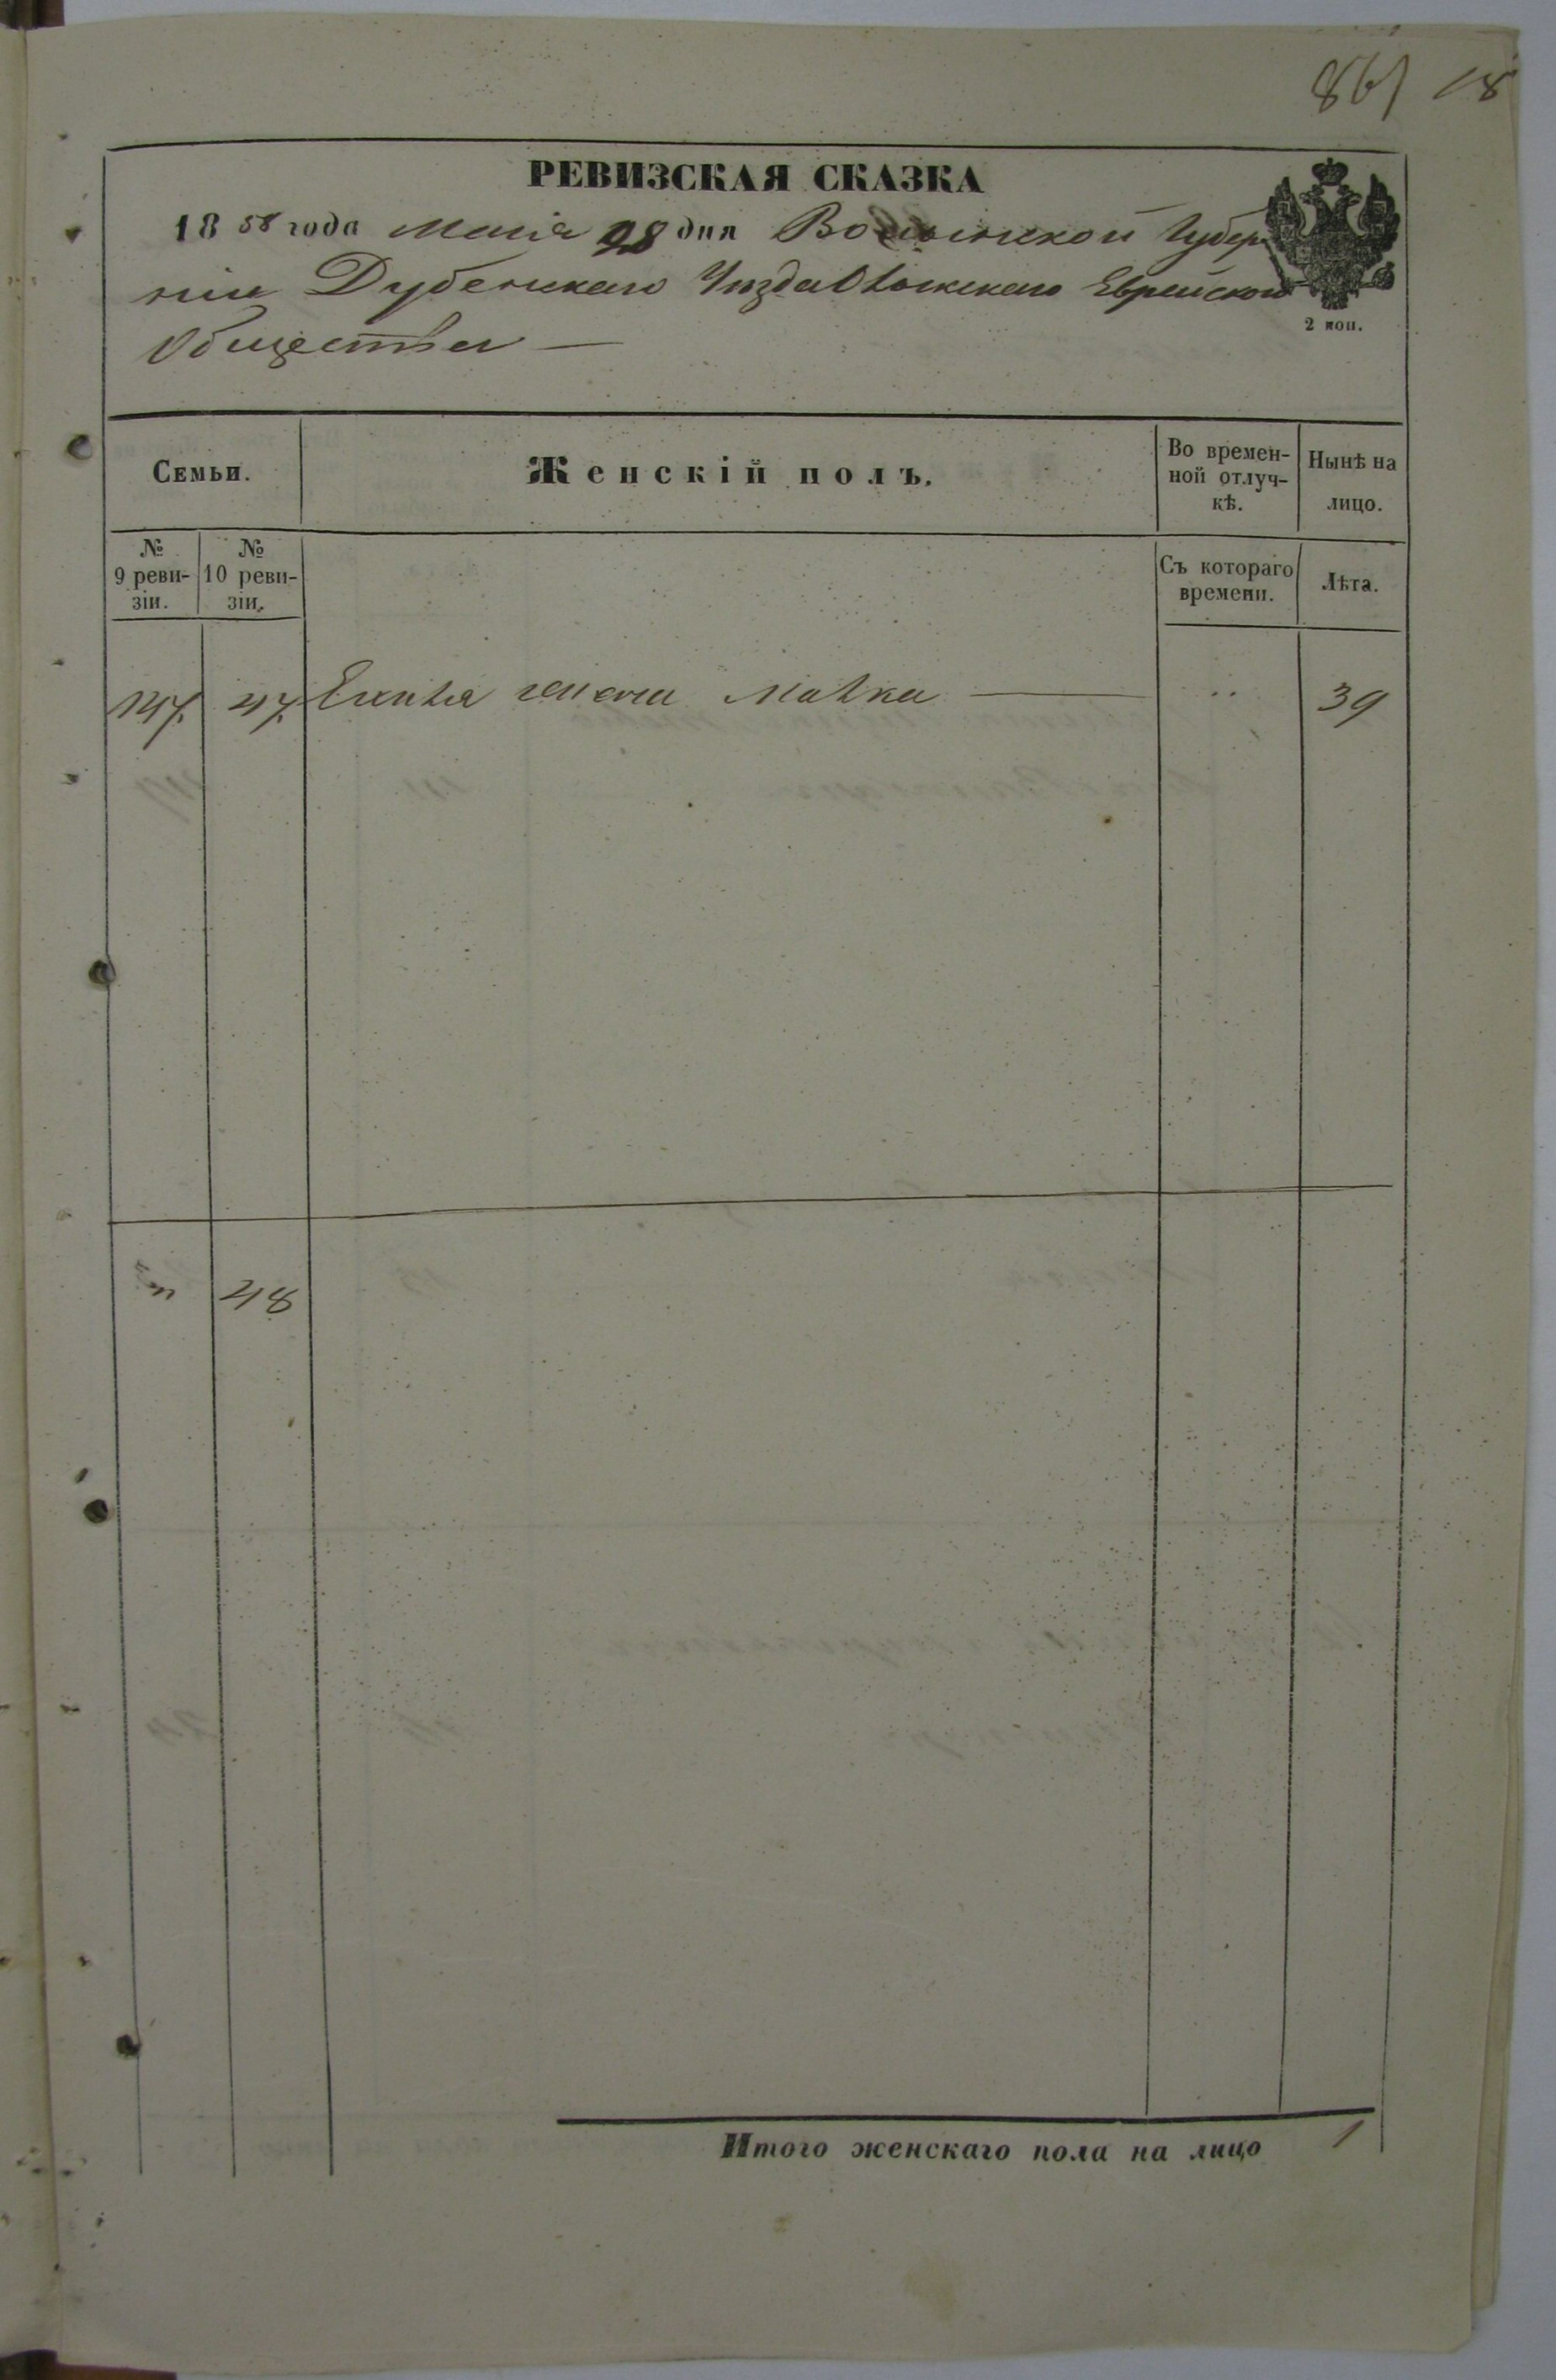 861 18
РЕВИЗСКАЯ СКАЗКА
18 58 года Маія 28 дня Волынской Губер
ніи Дубенскаго Уѣзда Олыкскаго Еврейскаго
Общества —
2 коп.
Семьи.
Женскій полъ.
Во времен-
ной отлуч-
кѣ.
Нынѣ на
лицо.
№
9 реви-
зіи.
№
10 реви-
зіи.
Съ котораго
времени.
Лѣта.
147. 47. жена Малка — 39
48
Итого женскаго пола на лицо 1